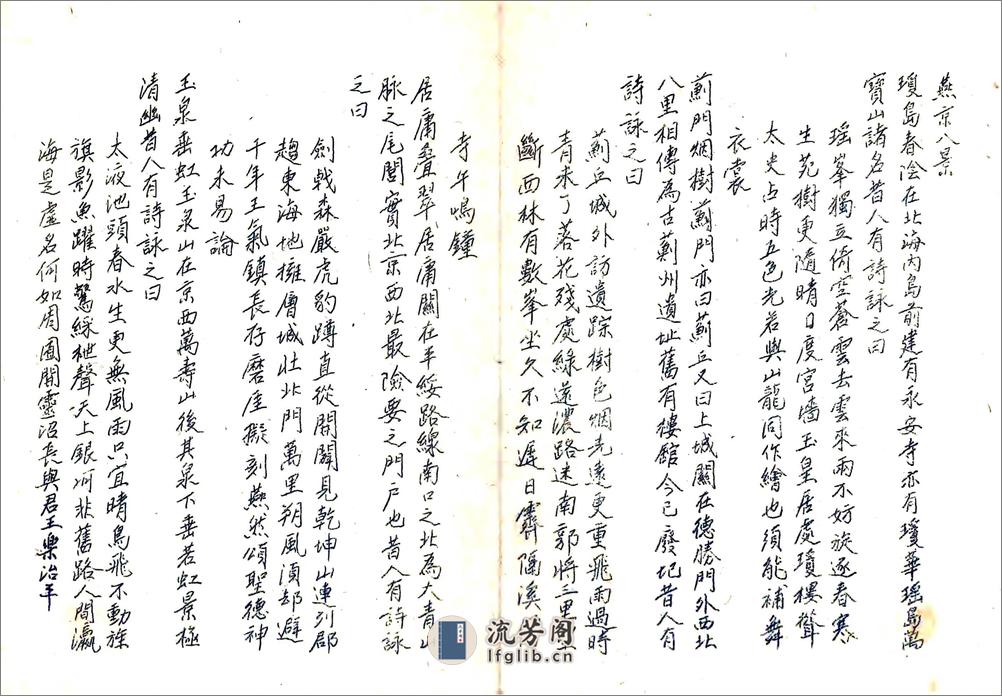 燕京八景
瓊島春陰在北海內島前建有永安寺亦有瓊華瑶島萬
寶山諸名昔人有詩詠之曰
瑶峯獨立倚空蒼雲去雲來雨不妨旋逐春寒
生苑樹更隨晴日度宮墻玉皇居處瓊樓聳
太史占時五色光若與山龍同作繪也須能補舞
衣裳
薊門烟樹薊門亦曰薊丘又曰土城關在德勝門外西北
八里相傳為古薊州遺址舊有樓館今已廢圮昔人有
詩詠之曰
薊丘城外訪遺踪樹色烟光遠更重飛雨過時
青未了落花殘處綠還濃路迷南郭將三里
斷西林有數峯坐久不知遲日霽隔溪
寺午鳴鐘
居庸叠翠居庸關在平綏路線南口之北為大青山
脉之尾閭實北京西北最險要之門戶也昔人有詩詠
之曰
劍戟森嚴虎豹蹲直從開闢見乾坤山連列郡
趨東海地擁層城壯北門萬里朔風須却避
千年王氣鎮長存磨崖擬刻燕然頌聖德神
功未易論
玉泉垂虹玉泉山在京西萬壽山後其泉下垂若虹景極
清幽昔人有詩詠之曰
太液池頭春水生更無風雨只宜晴鳥飛不動旌
旗影魚躍時驚綵枻聲天上銀河非舊路人間瀛
海是虛名何如周囿開靈沼長與君王樂治平
流芳阁
lfglib.cn